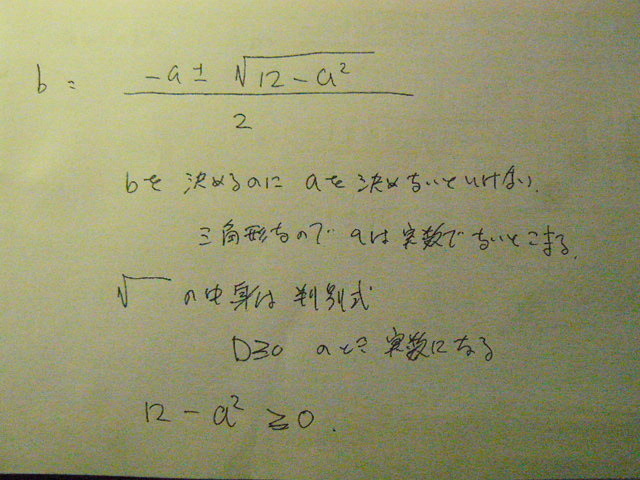 b = (-a ± √(12 - a²)) / 2
bを 決めるのに aを決めないといけない.
三角形なので aは実数でないとこまる.
√ の中身は 判別式
D≧0 のとき 実数になる
12 - a² ≧ 0.